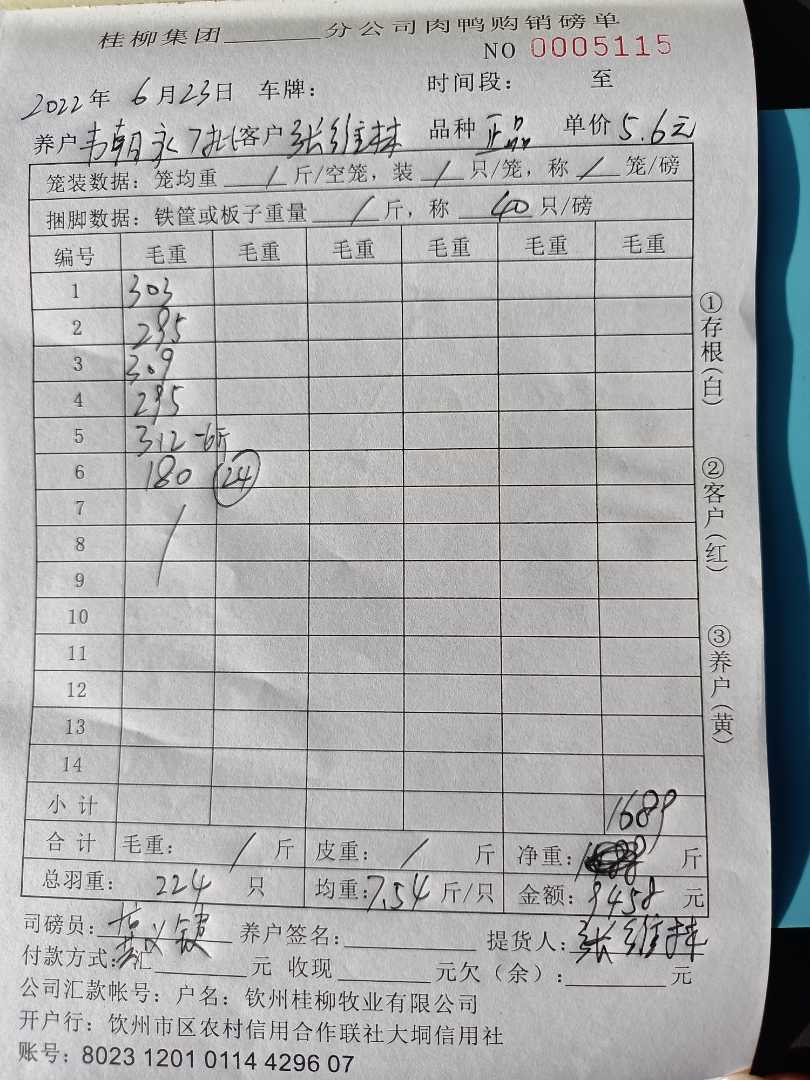 桂柳集团______分公司肉鸭购销磅单
NO 0005115
2022年 6月23日 车牌: 时间段: 至
养户 韦朝永7批 客户 张维林 品种 正品 单价 5.6元
笼装数据: 笼均重 / 斤/空笼, 装 / 只/笼, 称 / 笼/磅
捆脚数据: 铁筐或板子重量 / 斤, 称 40 只/磅
编号 毛重 毛重 毛重 毛重 毛重 毛重
1 303
2 295
3 309
4 295
5 312 -6斤
6 180 (24)
7
8
9
10
11
12
13
14
小计 1689
合计 毛重: / 斤 皮重: / 斤 净重: 斤
总羽重: 224 只 均重: 7.54 斤/只 金额: 9458 元
司磅员: 养户签名: 提货人: 张维林
付款方式: 汇______元 收现______元欠(余): ______元
公司汇款帐号: 户名: 钦州桂柳牧业有限公司
开户行: 钦州市区农村信用合作联社大垌信用社
账号: 8023 1201 0114 4296 07
①存根(白)
②客户(红)
③养户(黄)